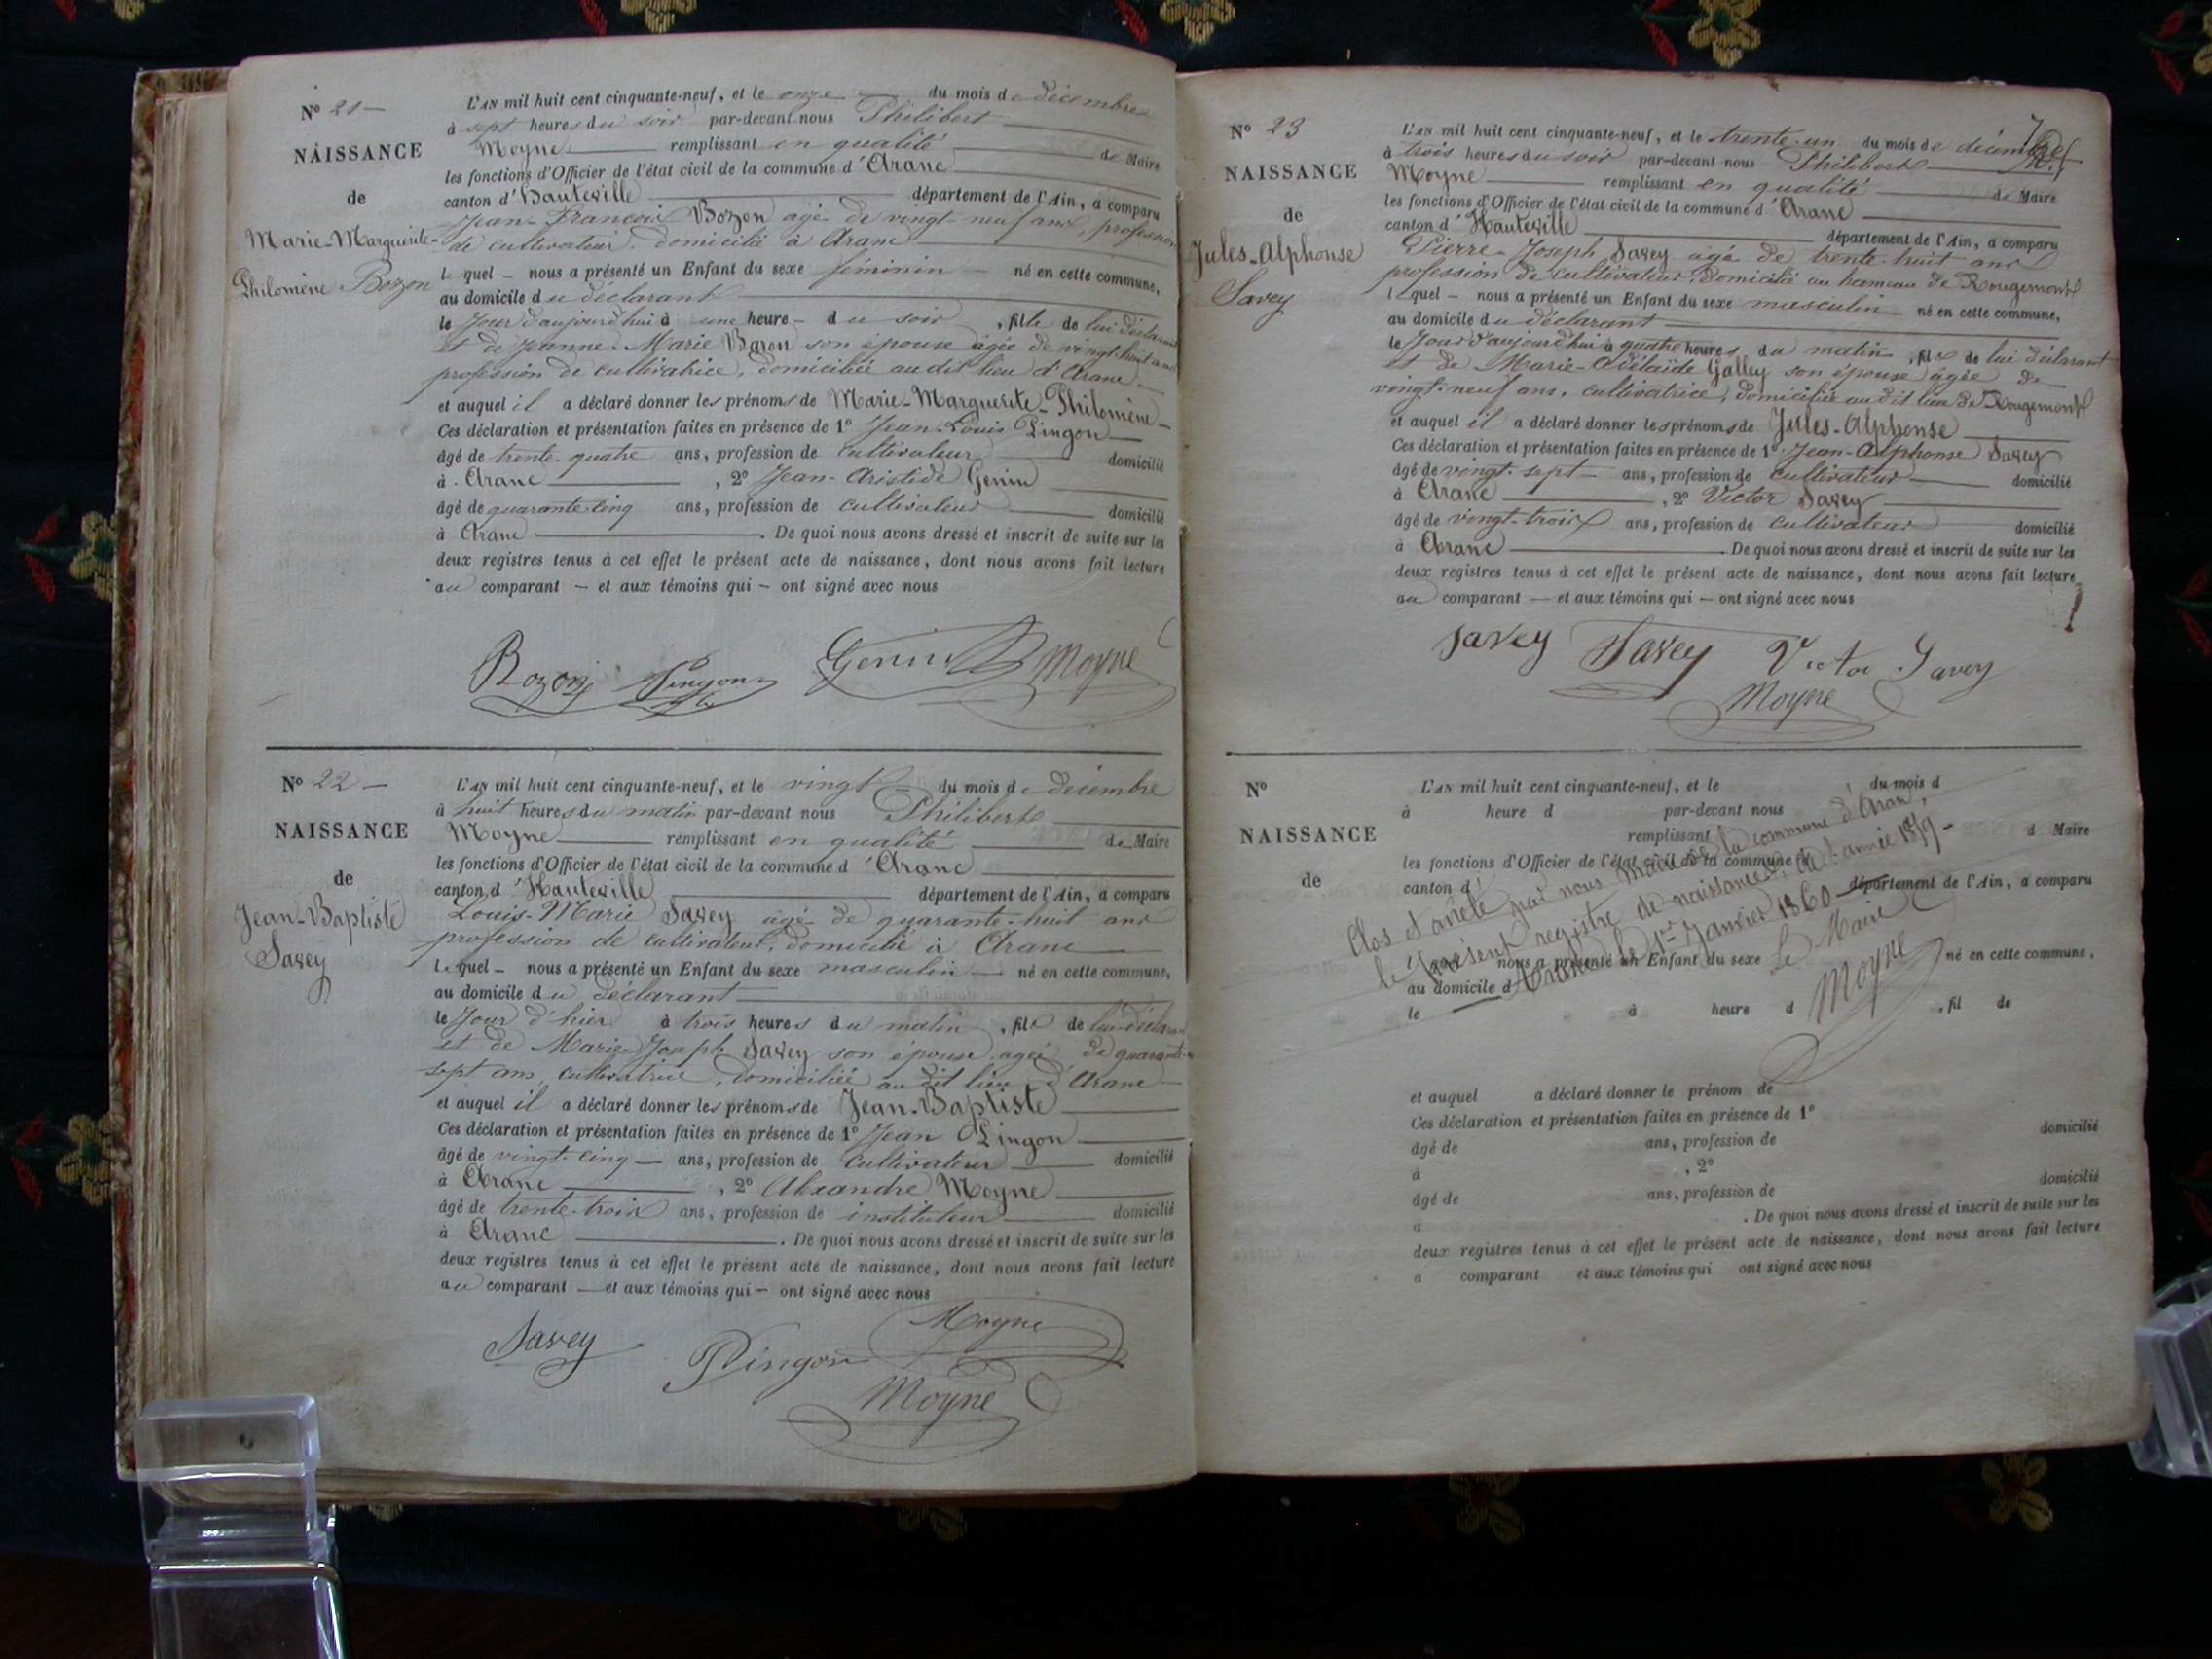 Nº 21 —
NAISSANCE
de
Marie-Marguerite-
Philomène Bozon
L'AN mil huit cent cinquante-neuf, et le onze — du mois de décembre
à sept heures du soir par-devant nous Philibert
Moyne remplissant en qualité de Maire
les fonctions d'Officier de l'état civil de la commune d'Aranc
canton d'Hauteville département de l'Ain, a comparu
Jean-François Bozon agé de vingt-neuf ans, profession
de cultivateur, domicilié à Aranc
lequel — nous a présenté un Enfant du sexe féminin — né en cette commune,
au domicile du déclarant
le Jour d'aujourd'hui à une heure — du soir , fille de lui déclarant
et de Jeanne-Marie Baron son épouse agée de vingt-huit ans
profession de cultivatrice, domiciliée au dit lieu d'Aranc —
et auquel il a déclaré donner les prénoms de Marie-Marguerite-Philomène —
Ces déclaration et présentation faites en présence de 1º Jean-Louis Pingon
âgé de trente-quatre ans, profession de cultivateur domicilié
à Aranc , 2º Jean-Aristide Genin
âgé de quarante-cinq ans, profession de cultivateur domicilié
à Aranc . De quoi nous avons dressé et inscrit de suite sur les
deux registres tenus à cet effet le présent acte de naissance, dont nous avons fait lecture
au comparant — et aux témoins qui — ont signé avec nous
Bozon Pingon Genin Moyne
Nº 22 —
NAISSANCE
de
Jean-Baptiste
Savey
L'AN mil huit cent cinquante-neuf, et le vingt — du mois de décembre
à huit heures du matin par-devant nous Philibert
Moyne remplissant en qualité de Maire
les fonctions d'Officier de l'état civil de la commune d'Aranc
canton d'Hauteville département de l'Ain, a comparu
Louis-Marie Savey agé de quarante-huit ans
profession de cultivateur, domicilié à Aranc
lequel — nous a présenté un Enfant du sexe masculin — né en cette commune,
au domicile du déclarant
le Jour d'hier à trois heures du matin , fils de lui déclarant
et de Marie-Joseph Savey son épouse agée de quarante-
sept ans, cultivatrice, domiciliée au dit lieu d'Aranc —
et auquel il a déclaré donner les prénoms de Jean-Baptiste
Ces déclaration et présentation faites en présence de 1º Jean Pingon
âgé de vingt-cinq — ans, profession de cultivateur domicilié
à Aranc , 2º Alexandre Moyne
âgé de trente-trois ans, profession de instituteur domicilié
à Aranc . De quoi nous avons dressé et inscrit de suite sur les
deux registres tenus à cet effet le présent acte de naissance, dont nous avons fait lecture
au comparant — et aux témoins qui — ont signé avec nous
Savey Pingon Moyne
Moyne
Nº 23
NAISSANCE
de
Jules-Alphonse
Savey
L'AN mil huit cent cinquante-neuf, et le trente-un du mois de décembre
à trois heures du soir par-devant nous Philibert
Moyne remplissant en qualité de Maire
les fonctions d'Officier de l'état civil de la commune d'Aranc
canton d'Hauteville département de l'Ain, a comparu
Pierre-Joseph Savey agé de trente-huit ans
profession de cultivateur, domicilié au hameau de Rougemont
lequel — nous a présenté un Enfant du sexe masculin — né en cette commune,
au domicile du déclarant
le Jour d'aujourd'hui à quatre heures du matin , fils de lui déclarant
et de Marie-Adélaïde Galley son épouse agée de
vingt-neuf ans, cultivatrice, domiciliée au dit lieu de Rougemont
et auquel il a déclaré donner les prénoms de Jules-Alphonse
Ces déclaration et présentation faites en présence de 1º Jean-Alphonse Savey
âgé de vingt-sept — ans, profession de cultivateur domicilié
à Aranc , 2º Victor Savey
âgé de vingt-trois ans, profession de cultivateur domicilié
à Aranc . De quoi nous avons dressé et inscrit de suite sur les
deux registres tenus à cet effet le présent acte de naissance, dont nous avons fait lecture
au comparant — et aux témoins qui — ont signé avec nous
Savey Savey Victor Savey
Moyne
Nº
NAISSANCE
de
L'AN mil huit cent cinquante-neuf, et le du mois d
à heure d par-devant nous
remplissant d Maire
les fonctions d'Officier de l'état civil de la commune d
canton d département de l'Ain, a comparu
Clos et arrêté par nous Maire de la commune d'Aranc,
le présent registre de naissances, de l'année 1859 —
Aranc le 1er Janvier 1860 —
Le Maire
Moyne
l quel nous a présenté un Enfant du sexe né en cette commune,
au domicile d
le à heure d , fil de
et auquel a déclaré donner le prénom de
Ces déclaration et présentation faites en présence de 1º
âgé de ans, profession de domicilié
à , 2º
âgé de ans, profession de domicilié
à . De quoi nous avons dressé et inscrit de suite sur les
deux registres tenus à cet effet le présent acte de naissance, dont nous avons fait lecture
a comparant et aux témoins qui ont signé avec nous